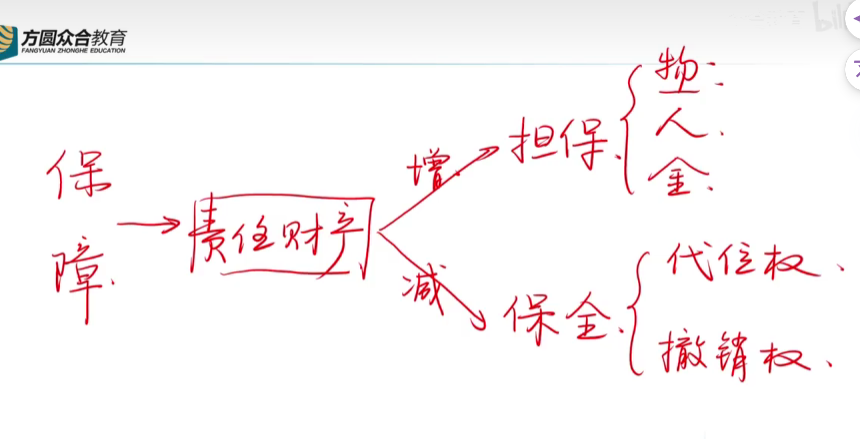 方圆众合教育
FANGYUAN ZHONGHE EDUCATION
bili
保障
责任财产
增
担保
物
人
金
减
保全
代位权
撤销权